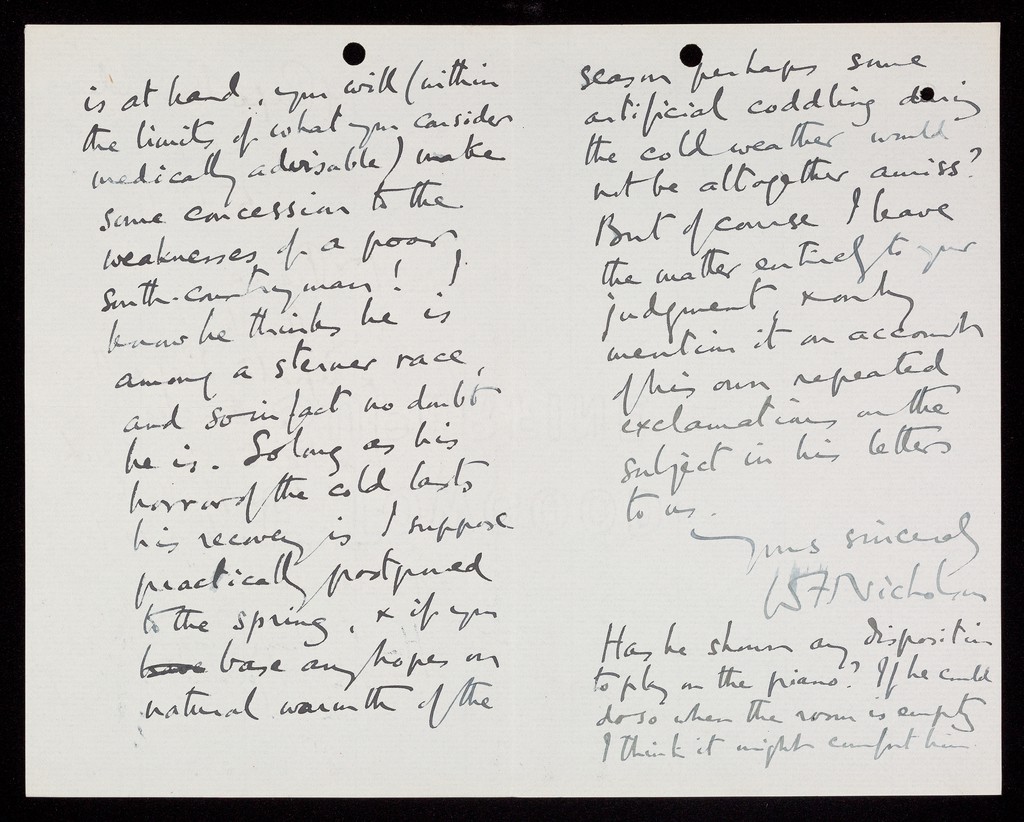 is at hand, you will (within
the limits of what you consider
medically advisable) make
some concession to the
weaknesses of a poor
south-countryman! I
know he thinks he is
among a sterner race,
and so in fact no doubt
he is. So long as his
horror of the cold lasts
his recovery is I suppose
practically postponed
to the spring, & if you
have base any hopes on
natural warmth of the
season perhaps some
artificial coddling during
the cold weather would
not be altogether amiss?
But of course I leave
the matter entirely to your
judgment, & only
mention it on account
of his own repeated
exclamations on the
subject in his letters
to us.
Yours sincerely
Nicholson
Has he shown any disposition
to play on the piano? If he could
do so when the room is empty
I think it might comfort him